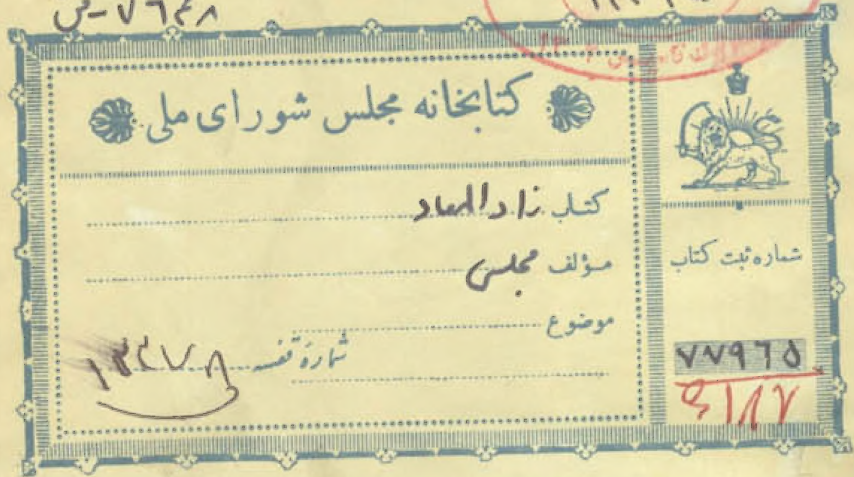 ۷۶۴۸
کتابخانه مجلس شورای ملی
کتاب زاد المعاد
مؤلف مجلسی
موضوع
شماره قفسه ۱۳۴۷۸
شماره ثبت کتاب
۷۷۹۶۵